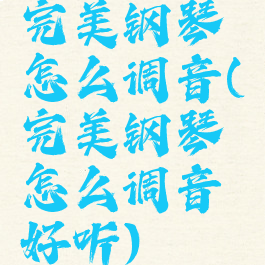 完美钢琴
怎么调音(
完美钢琴
怎么调音
好听)